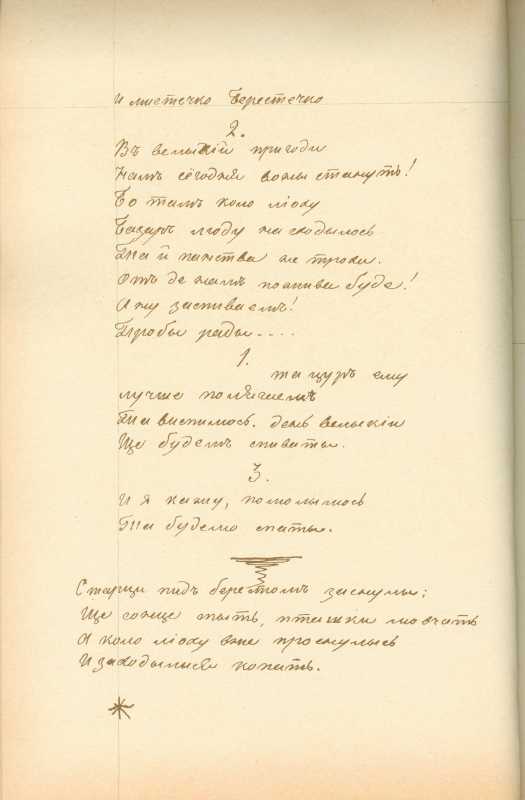 И мистечко Берестечко
2.
Въ велыкій пригоди
Намъ сёгодня воны стануть!
Бо тамъ коло лёху
Базаръ люду насходылось
Та й панства не трохи.
Отъ де намъ пожива буде!
Ану заспиваемъ!
Пробы рады....
1.
та цуръ ему
лучше поляжемъ
Та выспимось. день велыкій
Ще будемъ спиваты.
3.
И я кажу, помолымось
Та будемо спаты.
Старци пидъ берестомъ заснулы;
Ще сонце спыть, пташки мовчать
А коло лёху вже проснулысь
И заходылися копать.